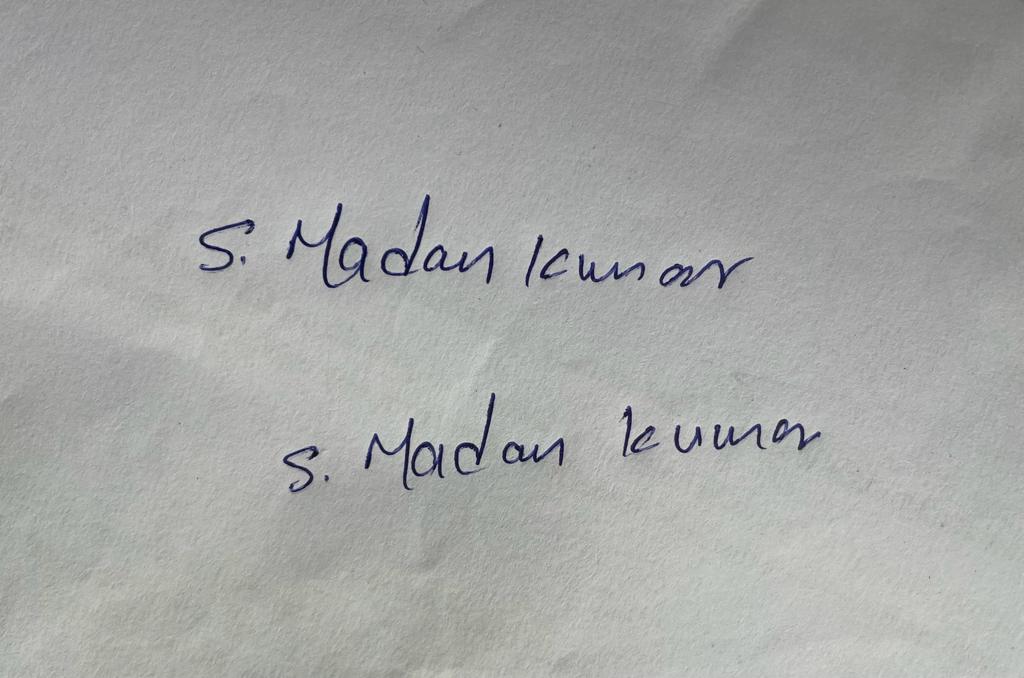 S. Madan kumar
S. Madan kumar